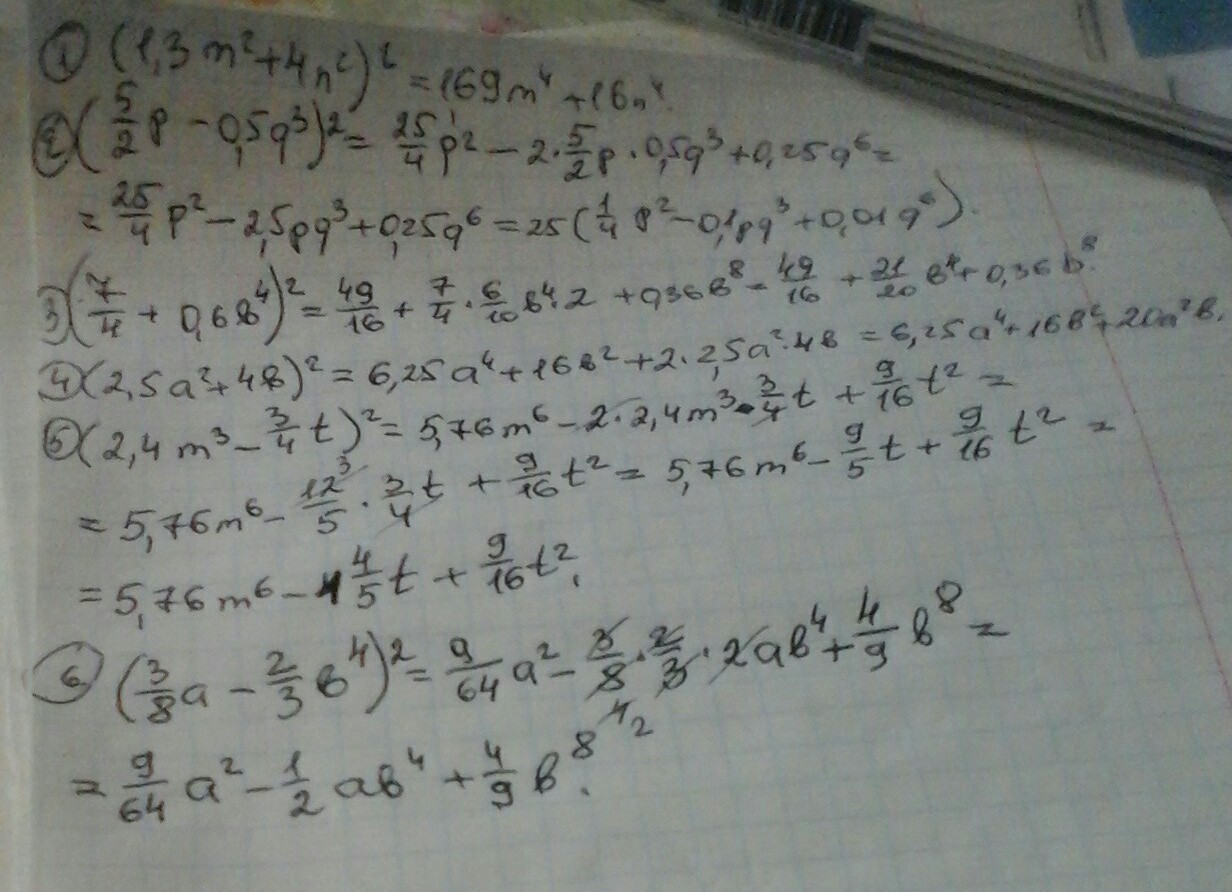 ① (1,3m²+4n²)² = 169m⁴+16n⁴.
② (5/2 p − 0,5q³)² = 25/4 p² − 2·5/2 p·0,5q³+0,25q⁶ =
= 25/4 p² − 2,5pq³+0,25q⁶ = 25(1/4 p² − 0,1pq³ + 0,01q⁶).
③ (7/4 + 0,6в⁴)² = 49/16 + 7/4 · 6/10 в⁴·2 + 0,36в⁸ = 49/16 + 21/20 в⁴ + 0,36в⁸.
④ (2,5a²+4в)² = 6,25a⁴+16в²+2·2,5a²·4в = 6,25a⁴+16в²+20a²в.
⑤ (2,4m³ − 3/4 t)² = 5,76m⁶ − 2·2,4m³·3/4 t + 9/16 t² =
= 5,76m⁶ − 12³/5 · 3/4 t + 9/16 t² = 5,76m⁶ − 9/5 t + 9/16 t² =
= 5,76m⁶ − 1 4/5 t + 9/16 t².
⑥ (3/8 a − 2/3 в⁴)² = 9/64 a² − 3/8 · 2/3 · 2aв⁴ + 4/9 в⁸ =
= 9/64 a² − 1/2 aв⁴ + 4/9 в⁸.